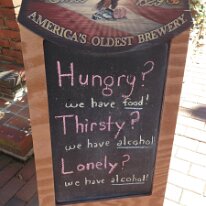 AMERICA'S OLDEST BREWERY
Hungry?
we have food!
Thirsty?
we have alcohol
Lonely?
we have alcohol!